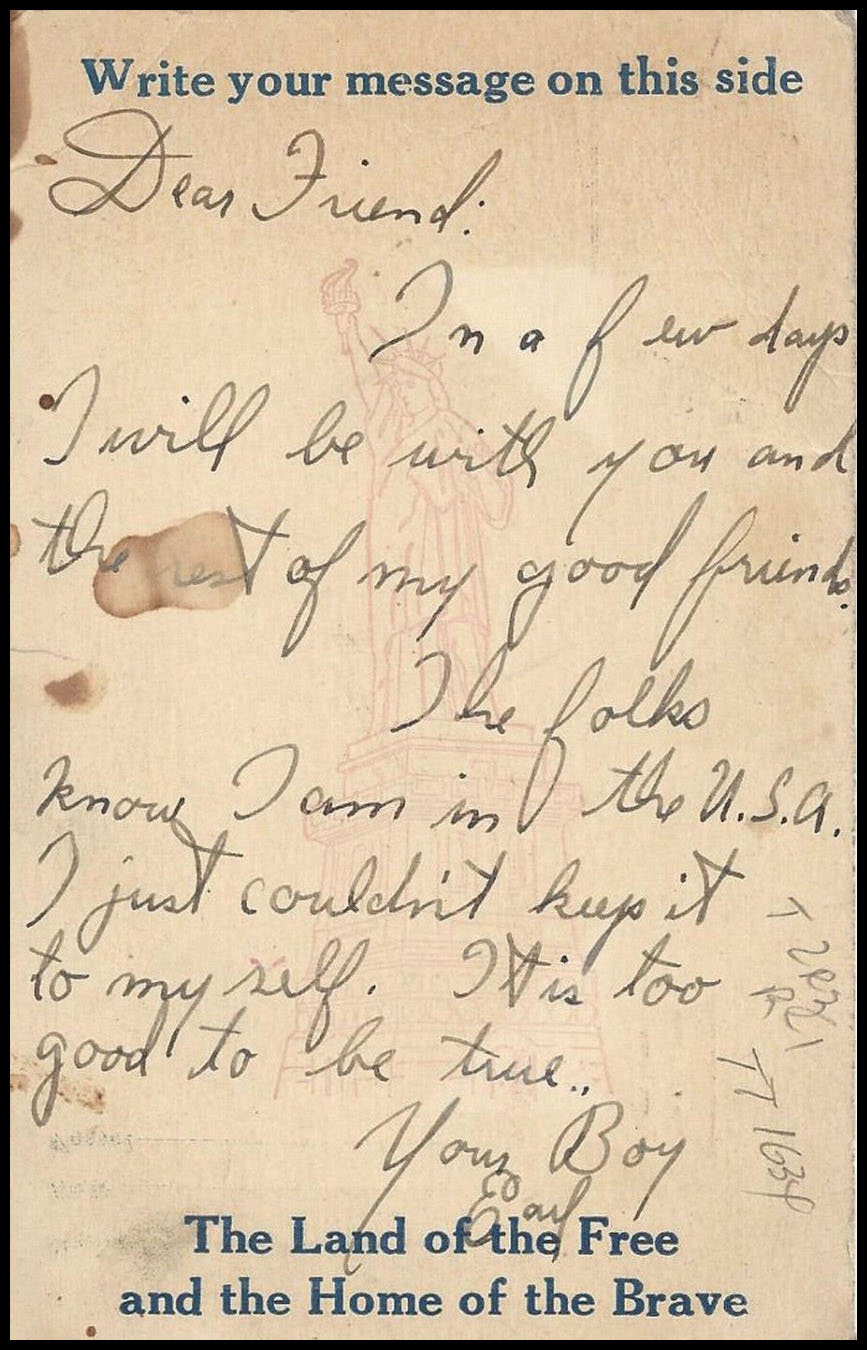 Write your message on this side
Dear Friend:
In a few days
I will be with you and
the rest of my good friends.
The folks
know I am in the U.S.A.
I just couldn't keep it
to my self. It is too
good to be true..
Your Boy
Earl
The Land of the Free
and the Home of the Brave
1634